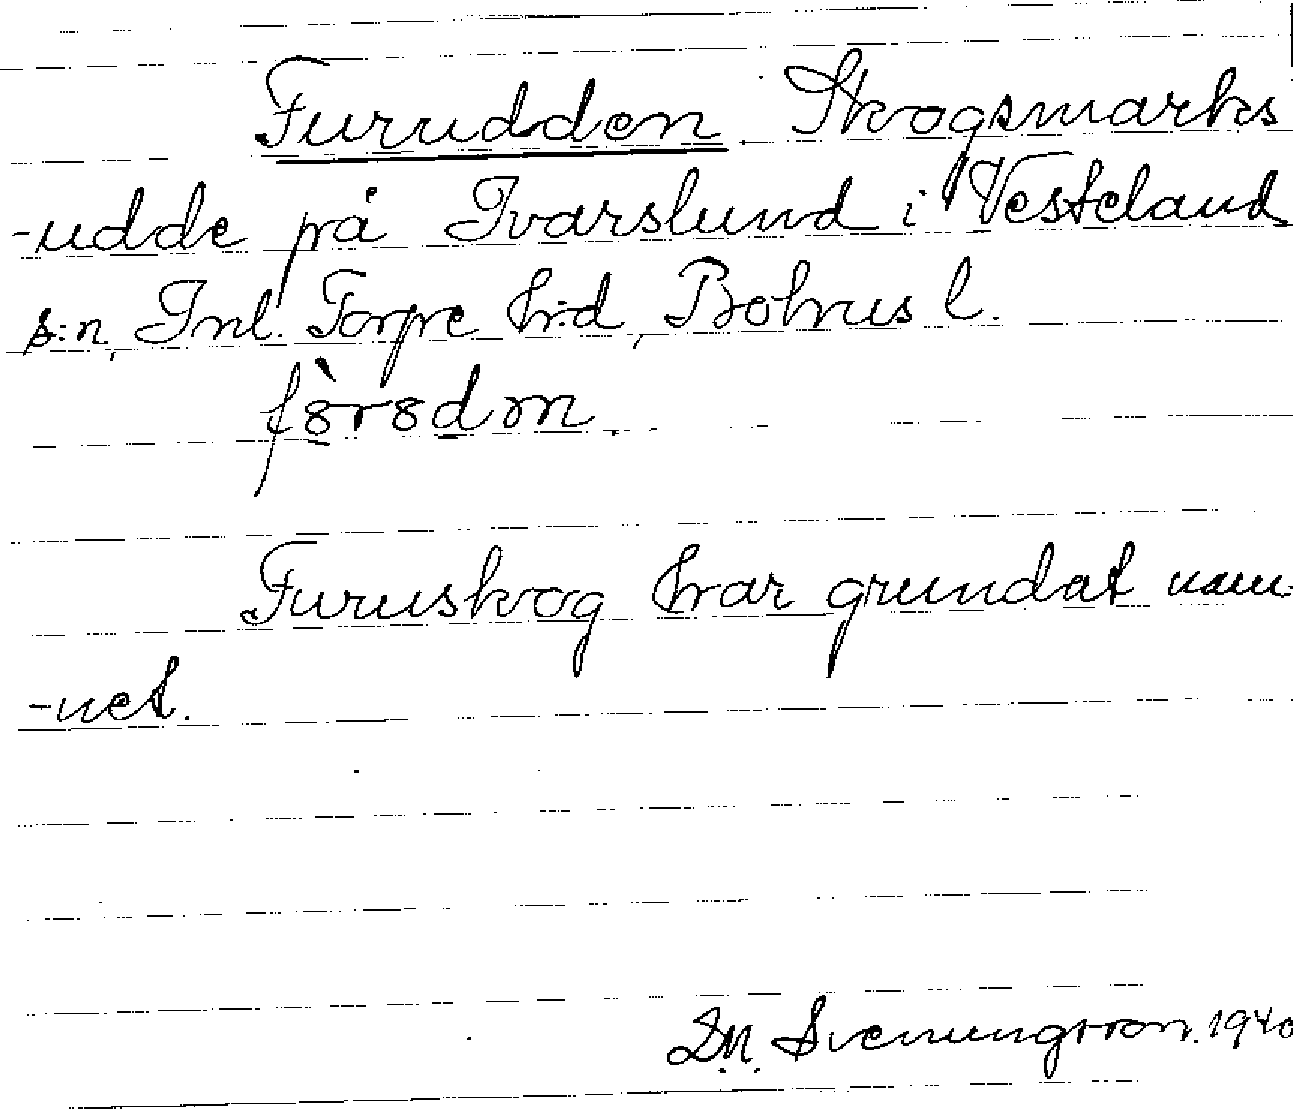 Furudden. Skogsmarks
-udde på Ivarslund i Vesteland
s:n, Inl. Torpe h:d, Bohus l.
fò̱r8dm.
Furuskog har grundat nam-
-net.
D.N. Svenungsson. 1940